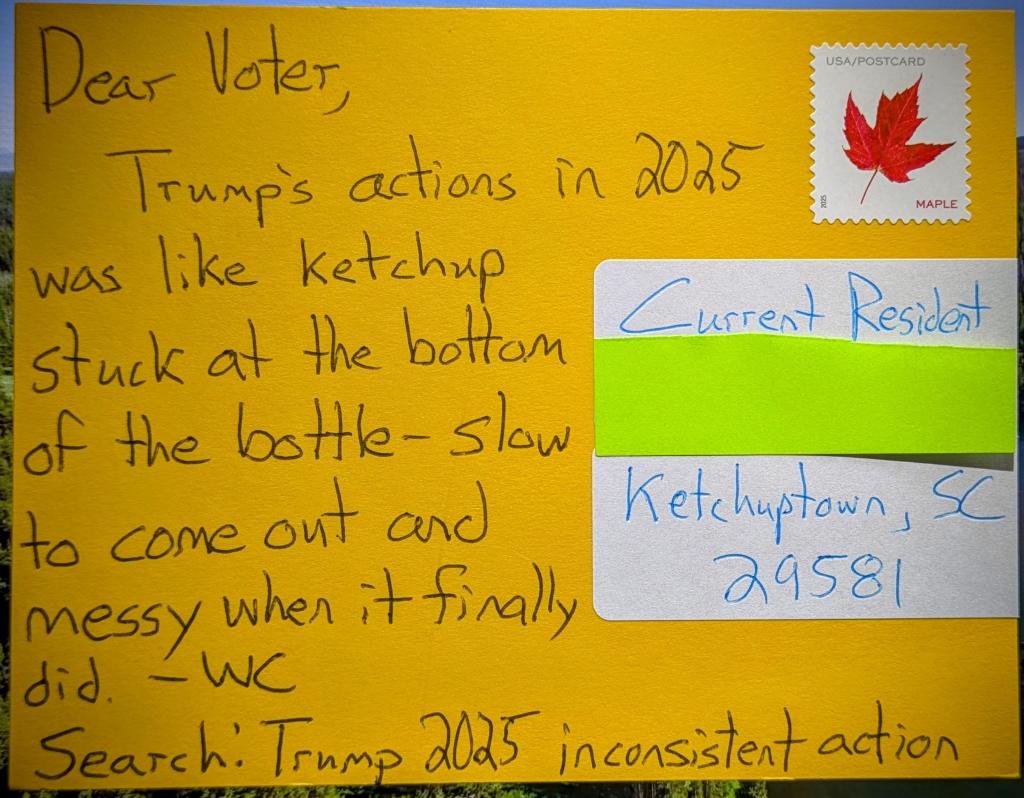 Dear Voter,
Trump's actions in 2025
was like ketchup
stuck at the bottom
of the bottle - slow
to come out and
messy when it finally
did. - WC
Search: Trump 2025 inconsistent action
USA/POSTCARD
2025
MAPLE
Current Resident
Ketchuptown, SC
29581